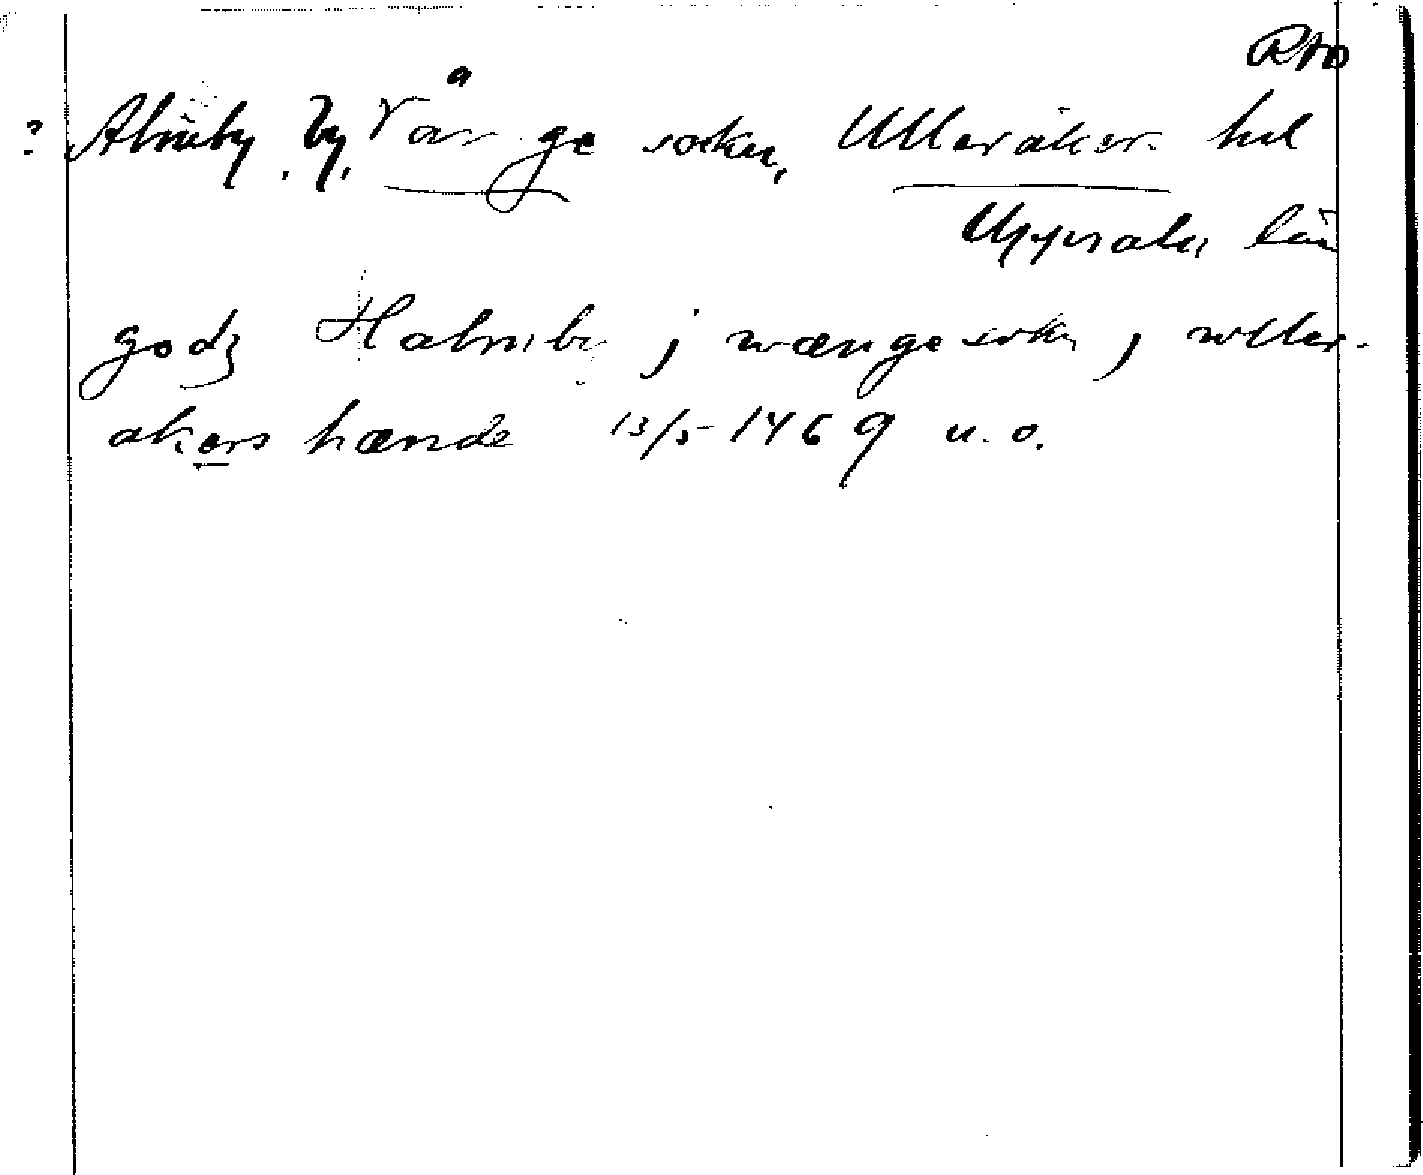 RAO
? Almby, By, Vänge socken, Ulleråkers hd
Uppsala län
godz Halmby j wænge sokn, j wller-
akers hænde 13/5 1469 u. o.